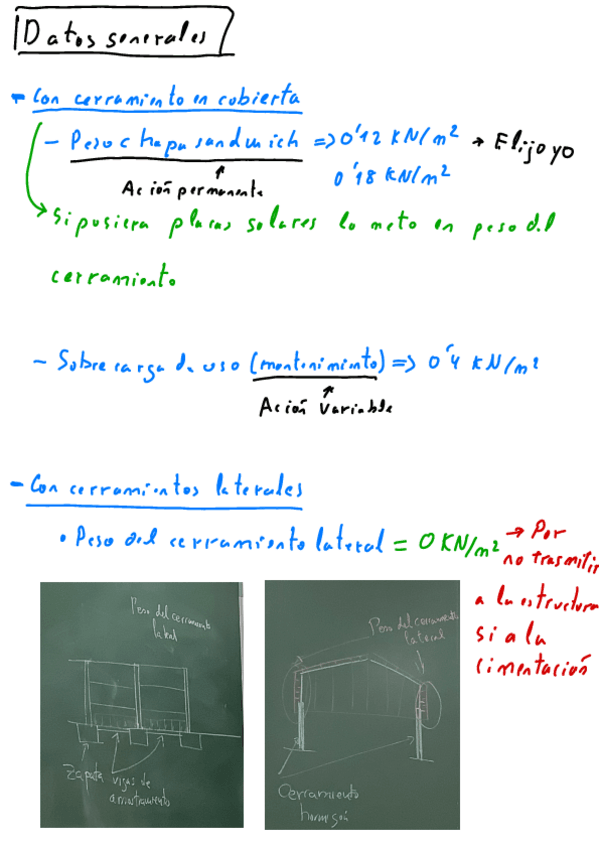 Datos generales
- Con cerramiento en cubierta
- Peso chapa sandwich => 0'12 KN/m² → Elijo yo
0'18 KN/m²
Ación permanente
Si pusiera placas solares lo meto en peso del
cerramiento
- Sobrecarga de uso (mantenimiento) => 0'4 KN/m²
Ación Variable
- Con cerramientos laterales
• Peso del cerramiento lateral = 0 KN/m² → Por
no trasmitir
a la estructura
si a la
cimentación
Peso del cerramiento
lateral
Zapata vigas de
arriostramiento
Peso del cerramiento
lateral
Cerramiento
hormigón